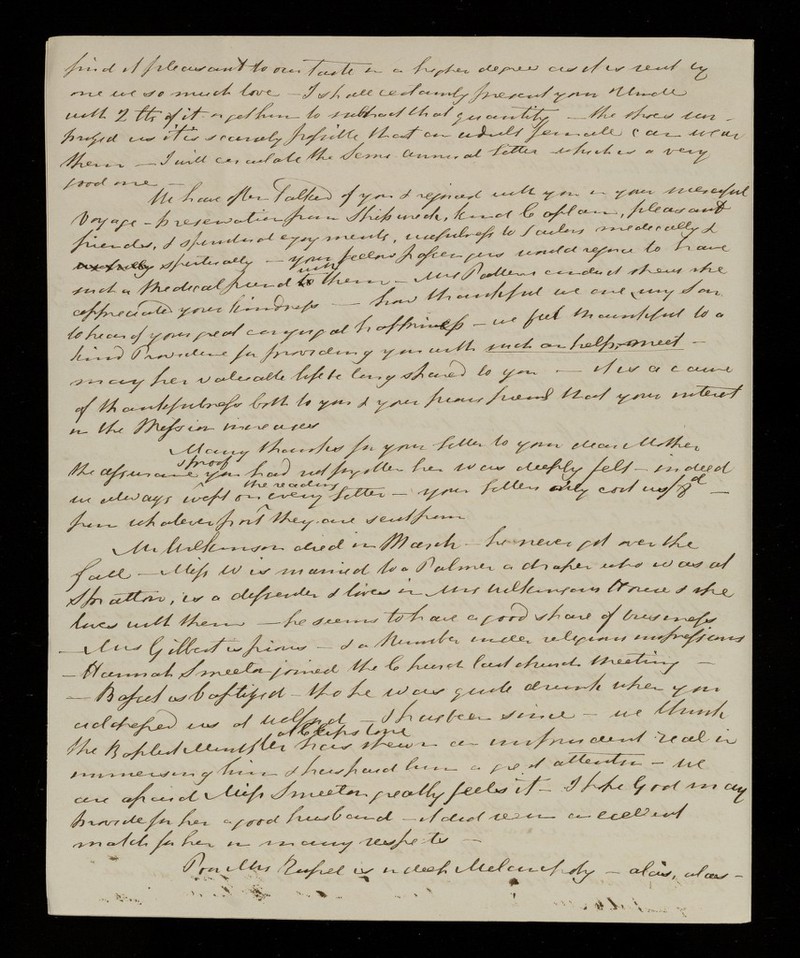 find it pleasant to our taste in a higher degree as it is sent by
one we so much love – I shall certainly present your Uncle
with 2 lbs of it or get him to subtract that quantity – the shoes sur-
prized us it is scarcely possible that an adult female can wear
them – I will circulate the Semi annual letter which is a very
good one –
We have often talked of you & rejoiced with you in your merciful
Voyage – preservation from Shipwreck, kind Captain, pleasant
friends, & spiritual enjoyments, usefulness to Sailors medically &
spiritually – your fellow passengers would rejoice to have
such a Medical friend with them – Mrs conduct shews she
appreciated your kindness – how thankful we are my Son
to hear of your great conjugal happiness – we feel thankful to a
kind Providence for providing you with such an help-meet –
may her valuable life be long spared to you – it is a cause
of thankfulness both to you & your pious friend that your interest
in the Mission increases
Many thanks for your letter to your dear Mother
the assurance & proof you had not forgotten her was deeply felt – indeed
we always wept on the reading every letter – your letters only cost us 8d –
from whatever port they are sent from
Mr Wilkinson died in March he never got over the
fall – Miss W is married to a Palmer a draper who was at
Stratton, is a dissenter & lives in Mrs Wilkinsons House & she
lives with them – he seems to have a good share of business
– Mrs Gilbert is pious – & a Number under religious impressions
– Hannah Smeeton joined the Church last church meeting –
– is baptized – tho he was quite drunk when you
addressed us at Welford – & has been since – we think
the Baptist Minister at Clipstone has shewn an imprudent zeal in
immersing him & has paid him a great attention – we
are afraid Miss Smeeton greatly feels it – I hope God may
provide for her a good husband – it did seem an excellent
match for her in many respects –
Poor Mrs is in deep Melancholy – alas, alas –